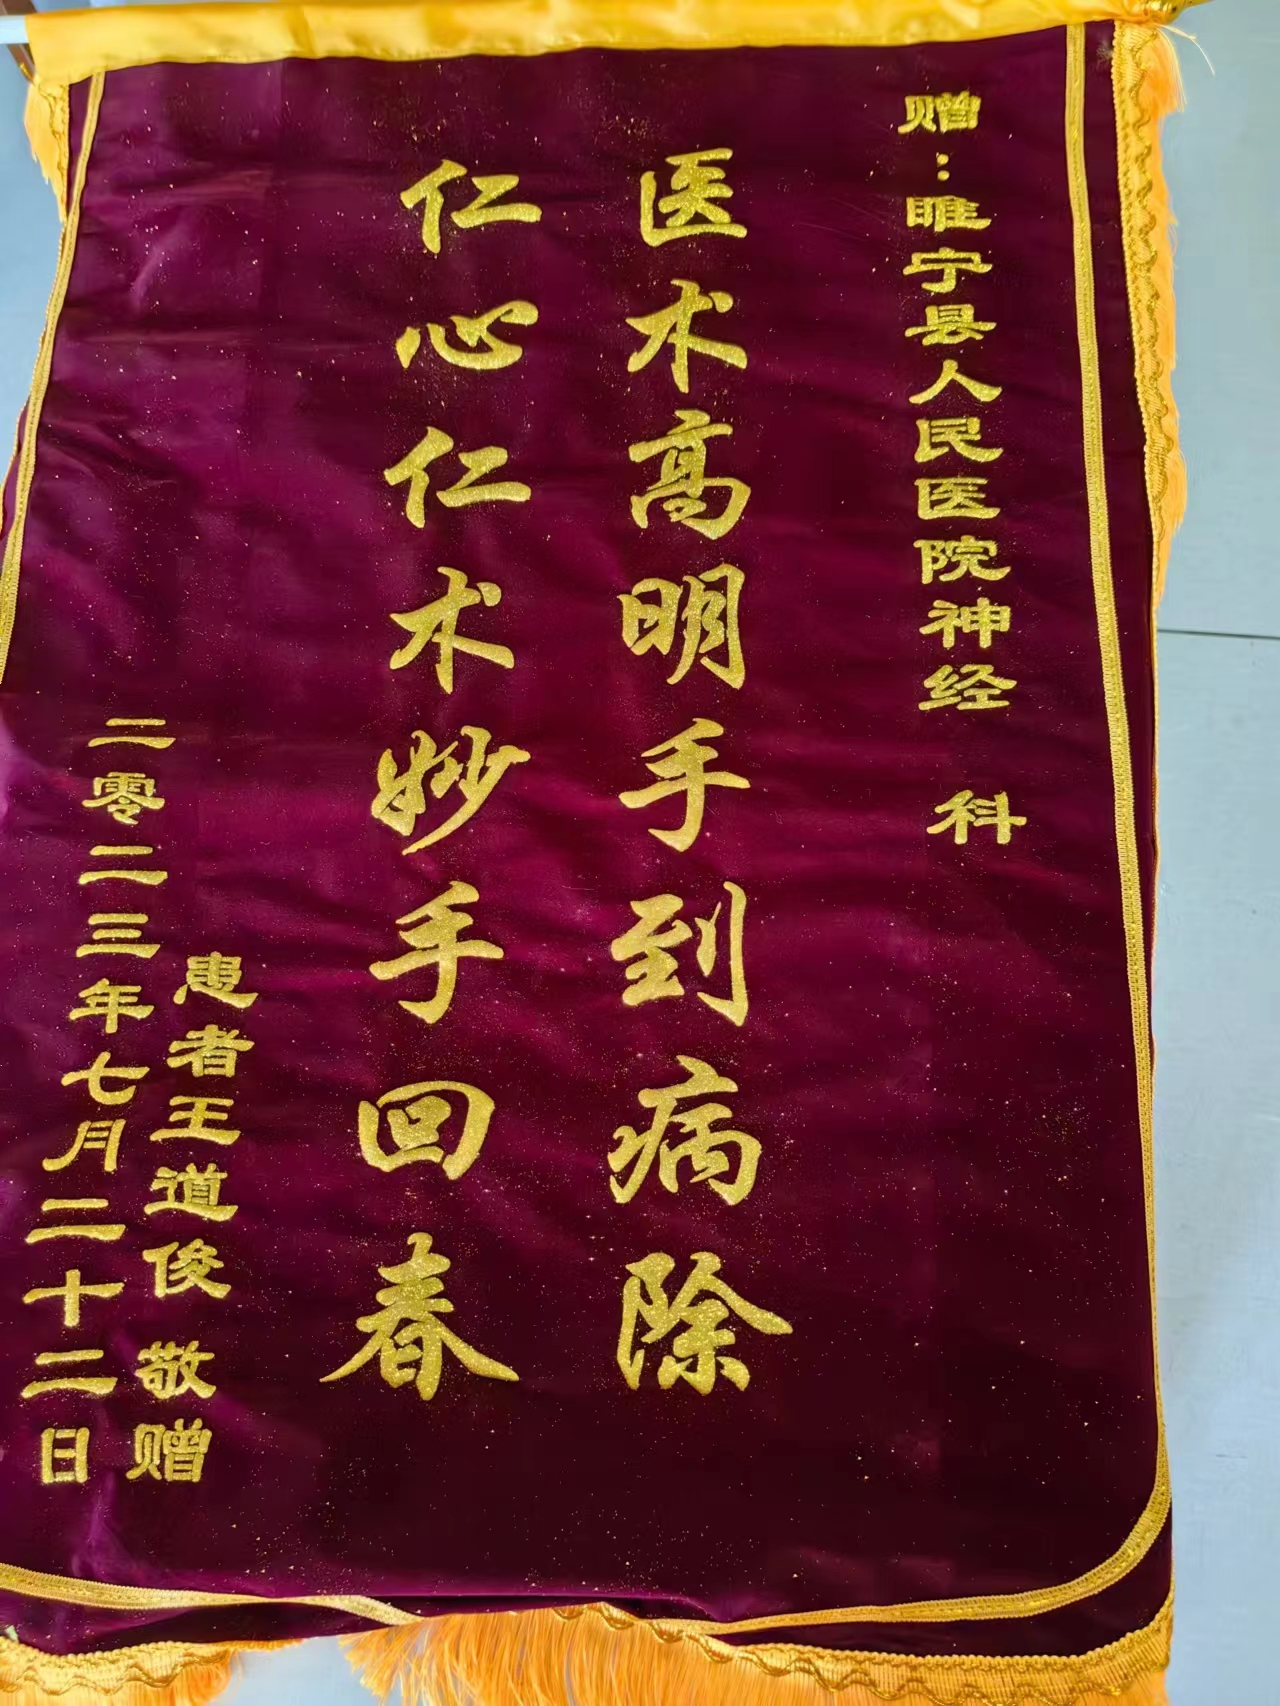 赠：睢宁县人民医院神经 科
医术高明手到病除
仁心仁术妙手回春
患者王道俊 敬赠
二零二三年七月二十二日